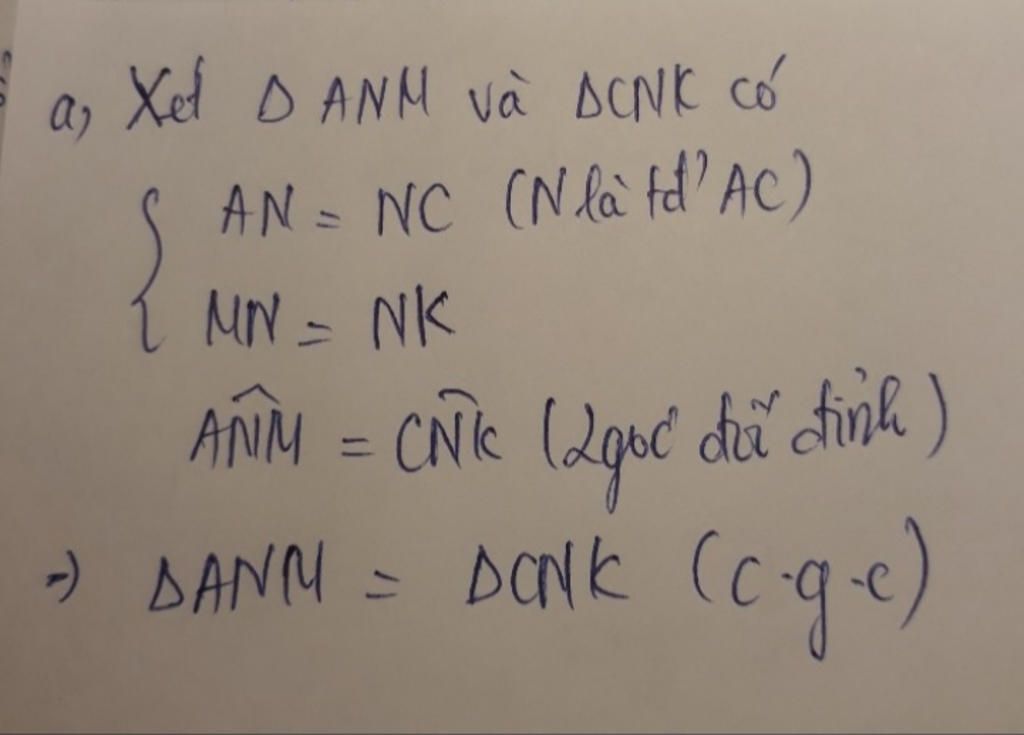 a, Xét Δ ANM và ΔCNK có
{ AN = NC (N là tđ' AC)
MN = NK
ANM̂ = CNK̂ (2 góc đối đỉnh)
=> ΔANM = ΔCNK (c-g-c)